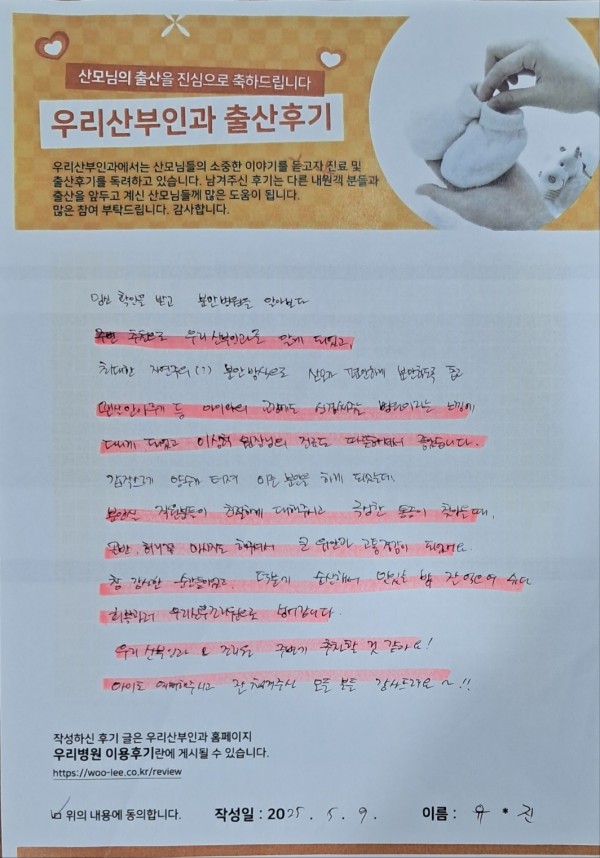 산모님의 출산을 진심으로 축하드립니다
우리산부인과 출산후기
우리산부인과에서는 산모님들의 소중한 이야기를 듣고자 진료 및
출산후기를 독려하고 있습니다. 남겨주신 후기는 다른 내원객 분들과
출산을 앞두고 계신 산모님들께 많은 도움이 됩니다.
많은 참여 부탁드립니다. 감사합니다.
임신 확인을 받고 분만병원을 알아보다
주변 추천으로 우리산부인과를 알게 되었고,
최대한 자연주의(?) 분만방식으로 산모가 편안하게 분만하도록 돕고
등 아이와의 교감에도 신경써주는 병원이라는 느낌에
다니게 되었고 이상희 원장님의 진료도 따뜻해서 좋았습니다.
갑작스레 양수가 터져 이른 분만을 하게 되었는데,
분만실 직원분들이 친절하게 대해주시고 극심한 통증이 찾아올때,
골반, 허리쪽 마사지도 해주셔서 큰 위안과 고통경감이 되었어요.
참 감사한 순간들이었고, 덕분에 순산해서 맛있는 밥 잘 먹으며 쉬다
우리산부인과 & 조리원 주변에 추천할 것 같아요!
아이도 예뻐해주시고 잘 챙겨주신 모든 분들 감사드려요~!!
작성하신 후기 글은 우리산부인과 홈페이지
우리병원 이용후기란에 게시될 수 있습니다.
https://woo-lee.co.kr/review
위의 내용에 동의합니다. 작성일 : 2025. 5. 9. 이름 : 유 * 진